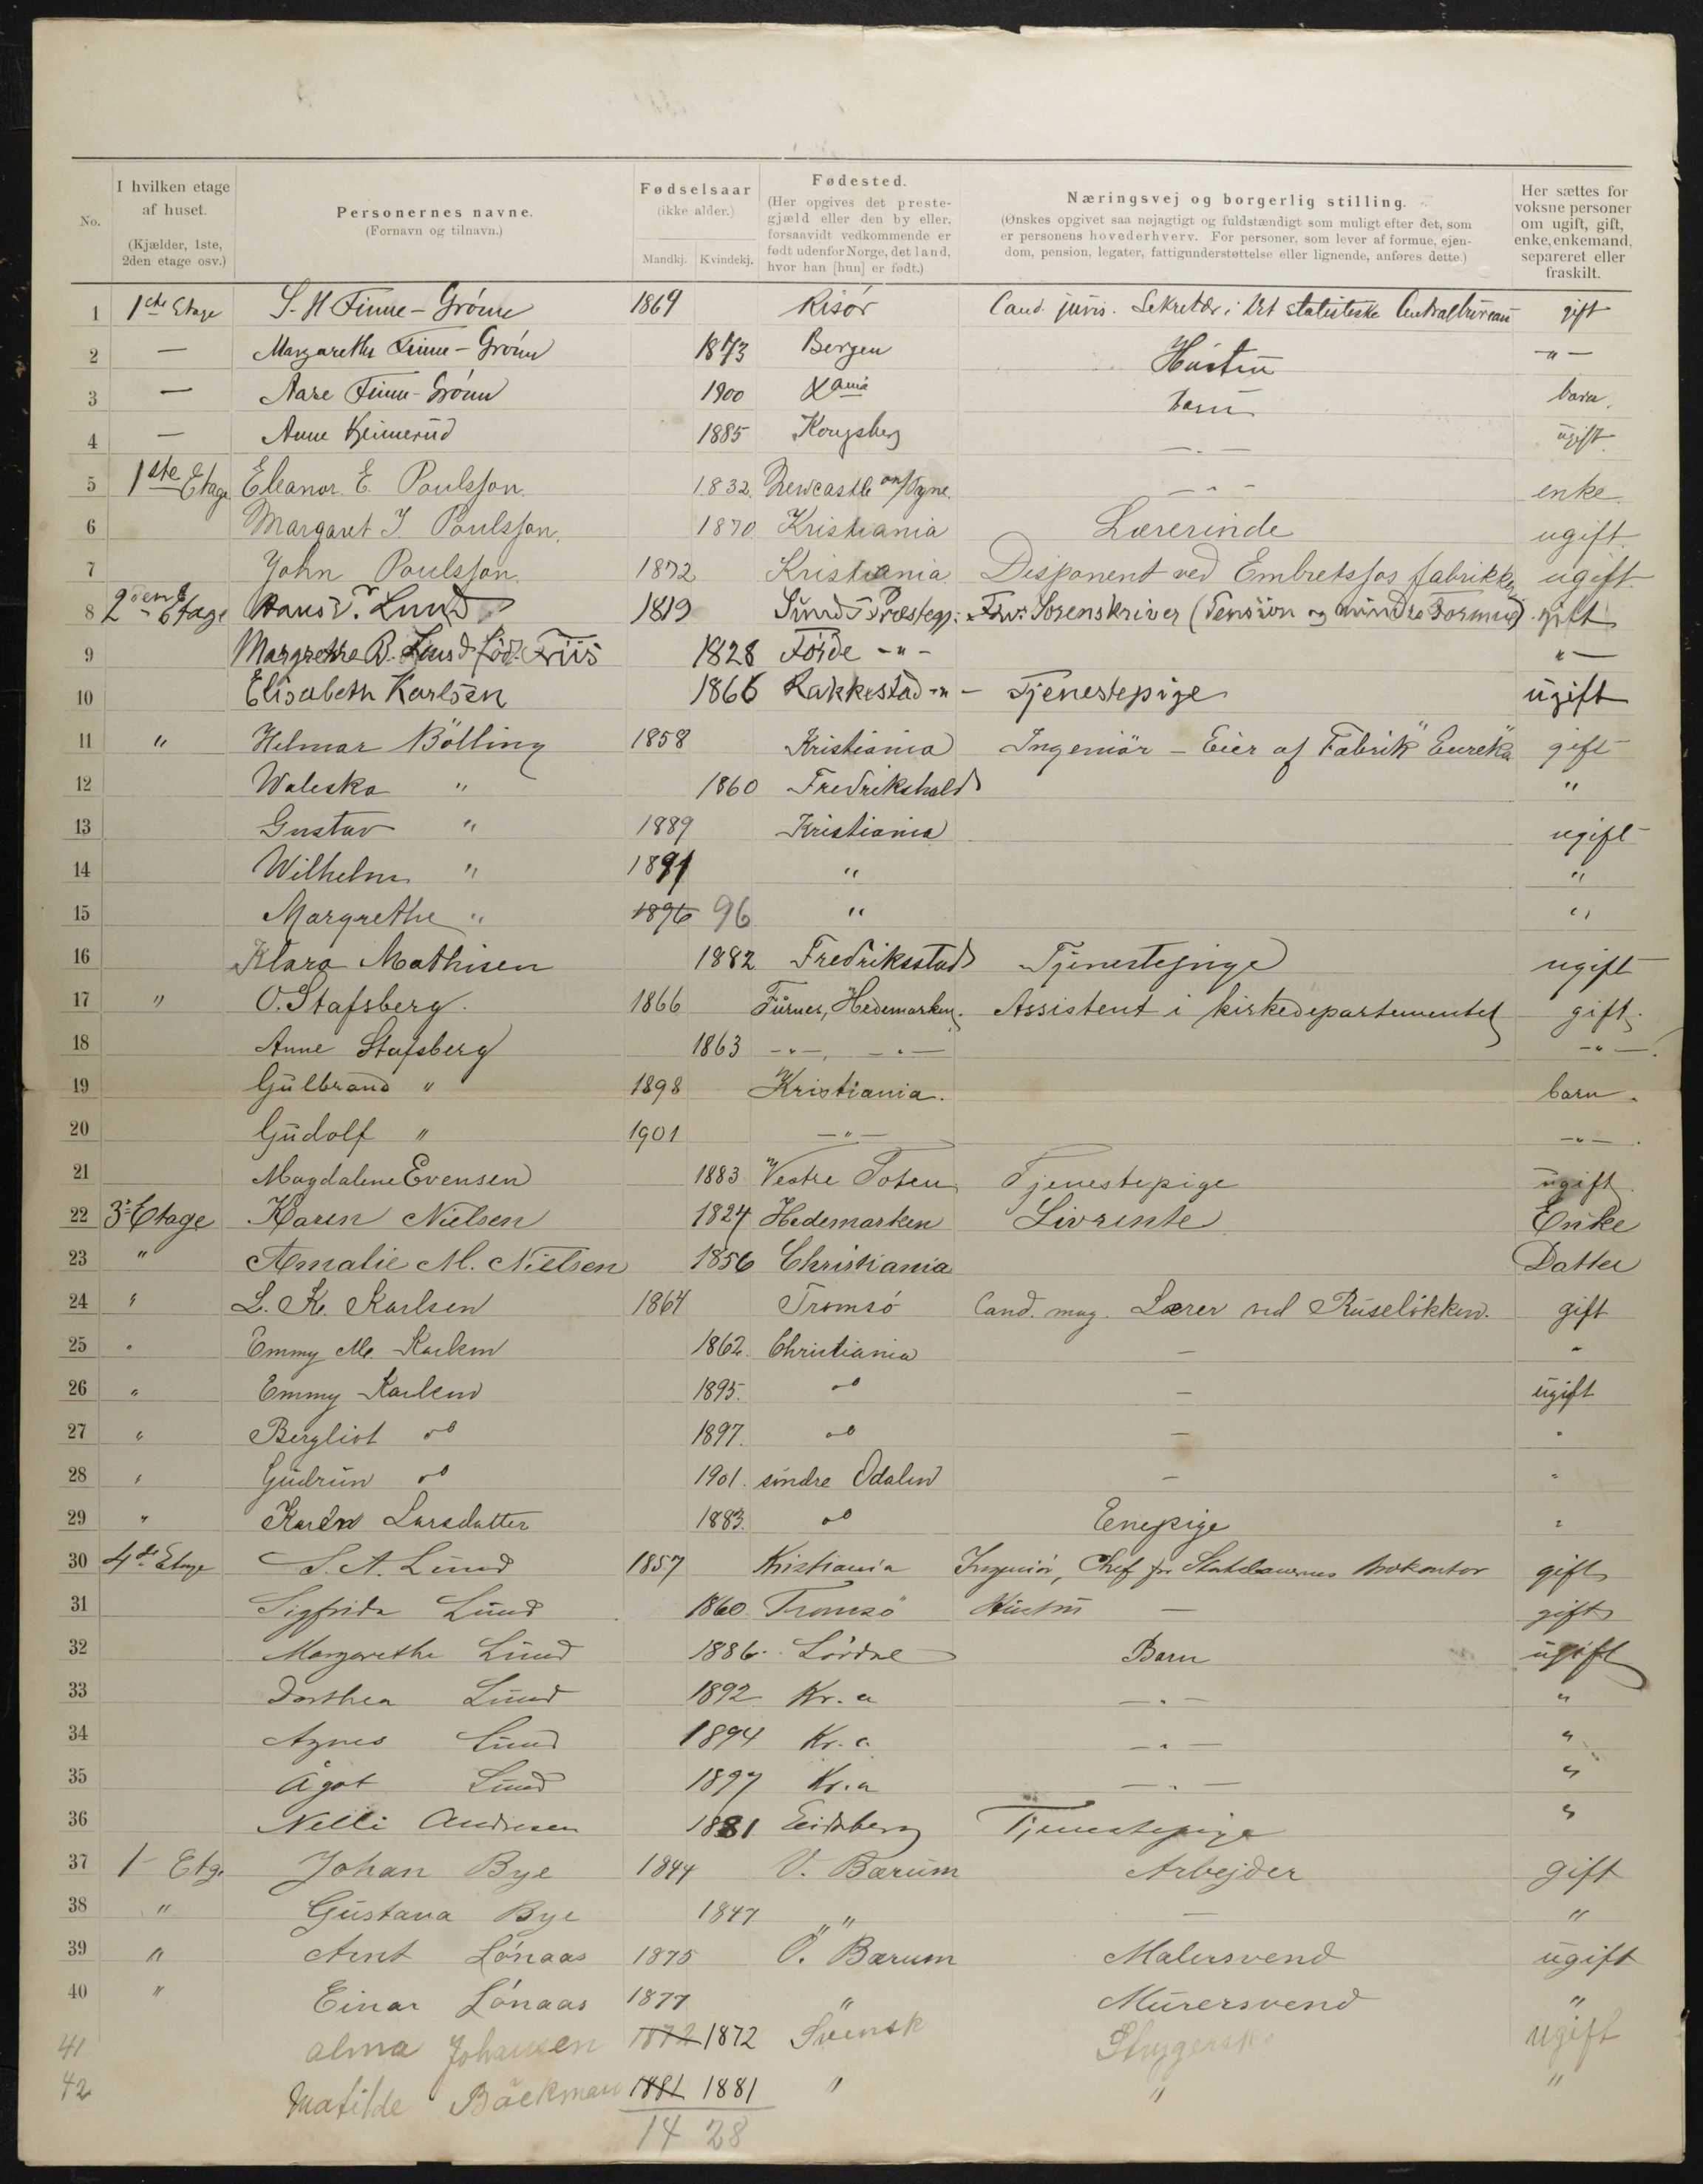 No.
I hvilken etage af huset. (Kjælder, 1ste, 2den etage osv.)
Personernes navne. (Fornavn og tilnavn.)
Fødselsaar (ikke alder.) Mandkj. Kvindekj.
Fødested. (Her opgives det prestegjæld eller den by eller, forsaavidt vedkommende er født udenfor Norge, det land, hvor han [hun] er født.)
Næringsvej og borgerlig stilling. (Ønskes opgivet saa nøjagtigt og fuldstændigt som muligt efter det, som er personens hovederhverv. For personer, som lever af formue, ejendom, pension, legater, fattigunderstøttelse eller lignende, anføres dette.)
Her sættes for voksne personer om ugift, gift, enke, enkemand, separeret eller fraskilt.
1 1ste Etage S. H Finne-Grönn 1869 Risör Cand. juris. Sekretær i Det statistiske Centralbureau gift
2 — Margarethe Finne-Grönn 1873 Bergen Hustru -"-
3 — Aase Finne-Grönn 1900 Xania barn barn.
4 — Anne 1885 Kongsberg -"- ugift
5 1ste Etage Eleanor. E. Poulsson. 1832. Newcastle on/Tyne. -"- enke.
6 Margaret J. Poulsson. 1870 Kristiania Lærerinde ugift.
7 John Poulsson. 1872 Kristiania Disponent ved Embretsfos fabrikker ugift
8 2den Etage Hans Lund 1819 Sunds Prestegj: Fhv. Sorenskriver (Pension og mindre Formue) gift
9 Margrethe B. Lund föd. Friis 1828 Förde -"- "—
10 Elisabeth Karlsen 1866 Rakkestad -"- Tjenestepige ugift
11 " Helmar Bölling 1858 Kristiania Ingeniör – Eier af Fabrik "Eureka gift
12 Waleska " 1860 Fredrikshald "
13 Gustav " 1889 Kristiania ugift
14 Wilhelm " 1891 " "
15 Margrethe " 1896 96 " "
16 Klara Mathisen 1882 Fredriksstad Tjenestepige ugift
17 " O. Stafsberg. 1866 Furnes, Hedemarken. Assistent i kirkedepartementet gift.
18 Anne Stafsberg 1863 -"-, -"- -"-.
19 Gulbrand " 1898 Kristiania. barn.
20 Gudolf " 1901 -"- -"-.
21 Magdalene Evensen 1883 Vestre Toten Tjenestepige ugift.
22 3. Etage Karen Nielsen 1824 Hedemarken Livrente Enke
23 " Amalie M. Nielsen 1856 Christiania Datter
24 " L. K. Karlsen 1864 Tromsö Cand. mag. Lærer ved Ruselökken. gift
25 " Emmy M. Karlsen 1862. Christiania — "
26 " Emmy Karlsen 1895. do — ugift
27 " Bergliot do 1897. do — "
28 " Gudrun do 1901. söndre Odalen — "
29 " Karen Larsdatter 1883. do Enepige "
30 4de Etage S. A. Lund 1857 Kristiania Ingeniör, Chef for Statsbanernes Brokontor gift
31 Sigfrida Lund 1860. Tromsö Hustru — gift
32 Margarethe Lund 1886. Barn ugift
33 Dorthea Lund 1892 Kr.a -"- "
34 Agnes Lund 1894 Kr.a -"- "
35 Ågot Lund 1897 Kr.a -"- "
36 Nelli Andresen 1881 Eidsberg Tjenestepige "
37 1 Etg. Johan Bye 1844 V. Bærum Arbejder gift
38 " Gustava Bye 1847 " — "
39 " Arnt Lönaas 1875 Ö. Bærum Malersvend ugift
40 " Einar Lönaas 1877 " Murersvend "
41 Alma Johansen 1872 1872 Svensk Strygerske ugift
42 Matilde Bäckman 1881 1881 " " "
14 28